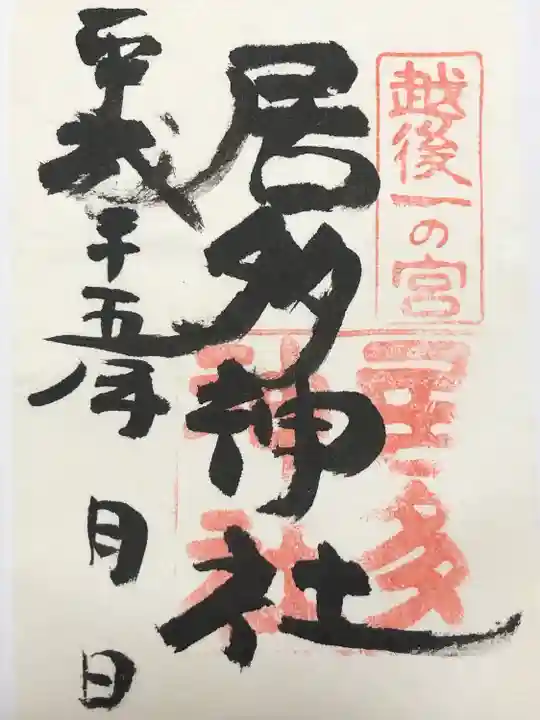 越後一の宮
居多
神社
居多神社
平成二十五年 月 日